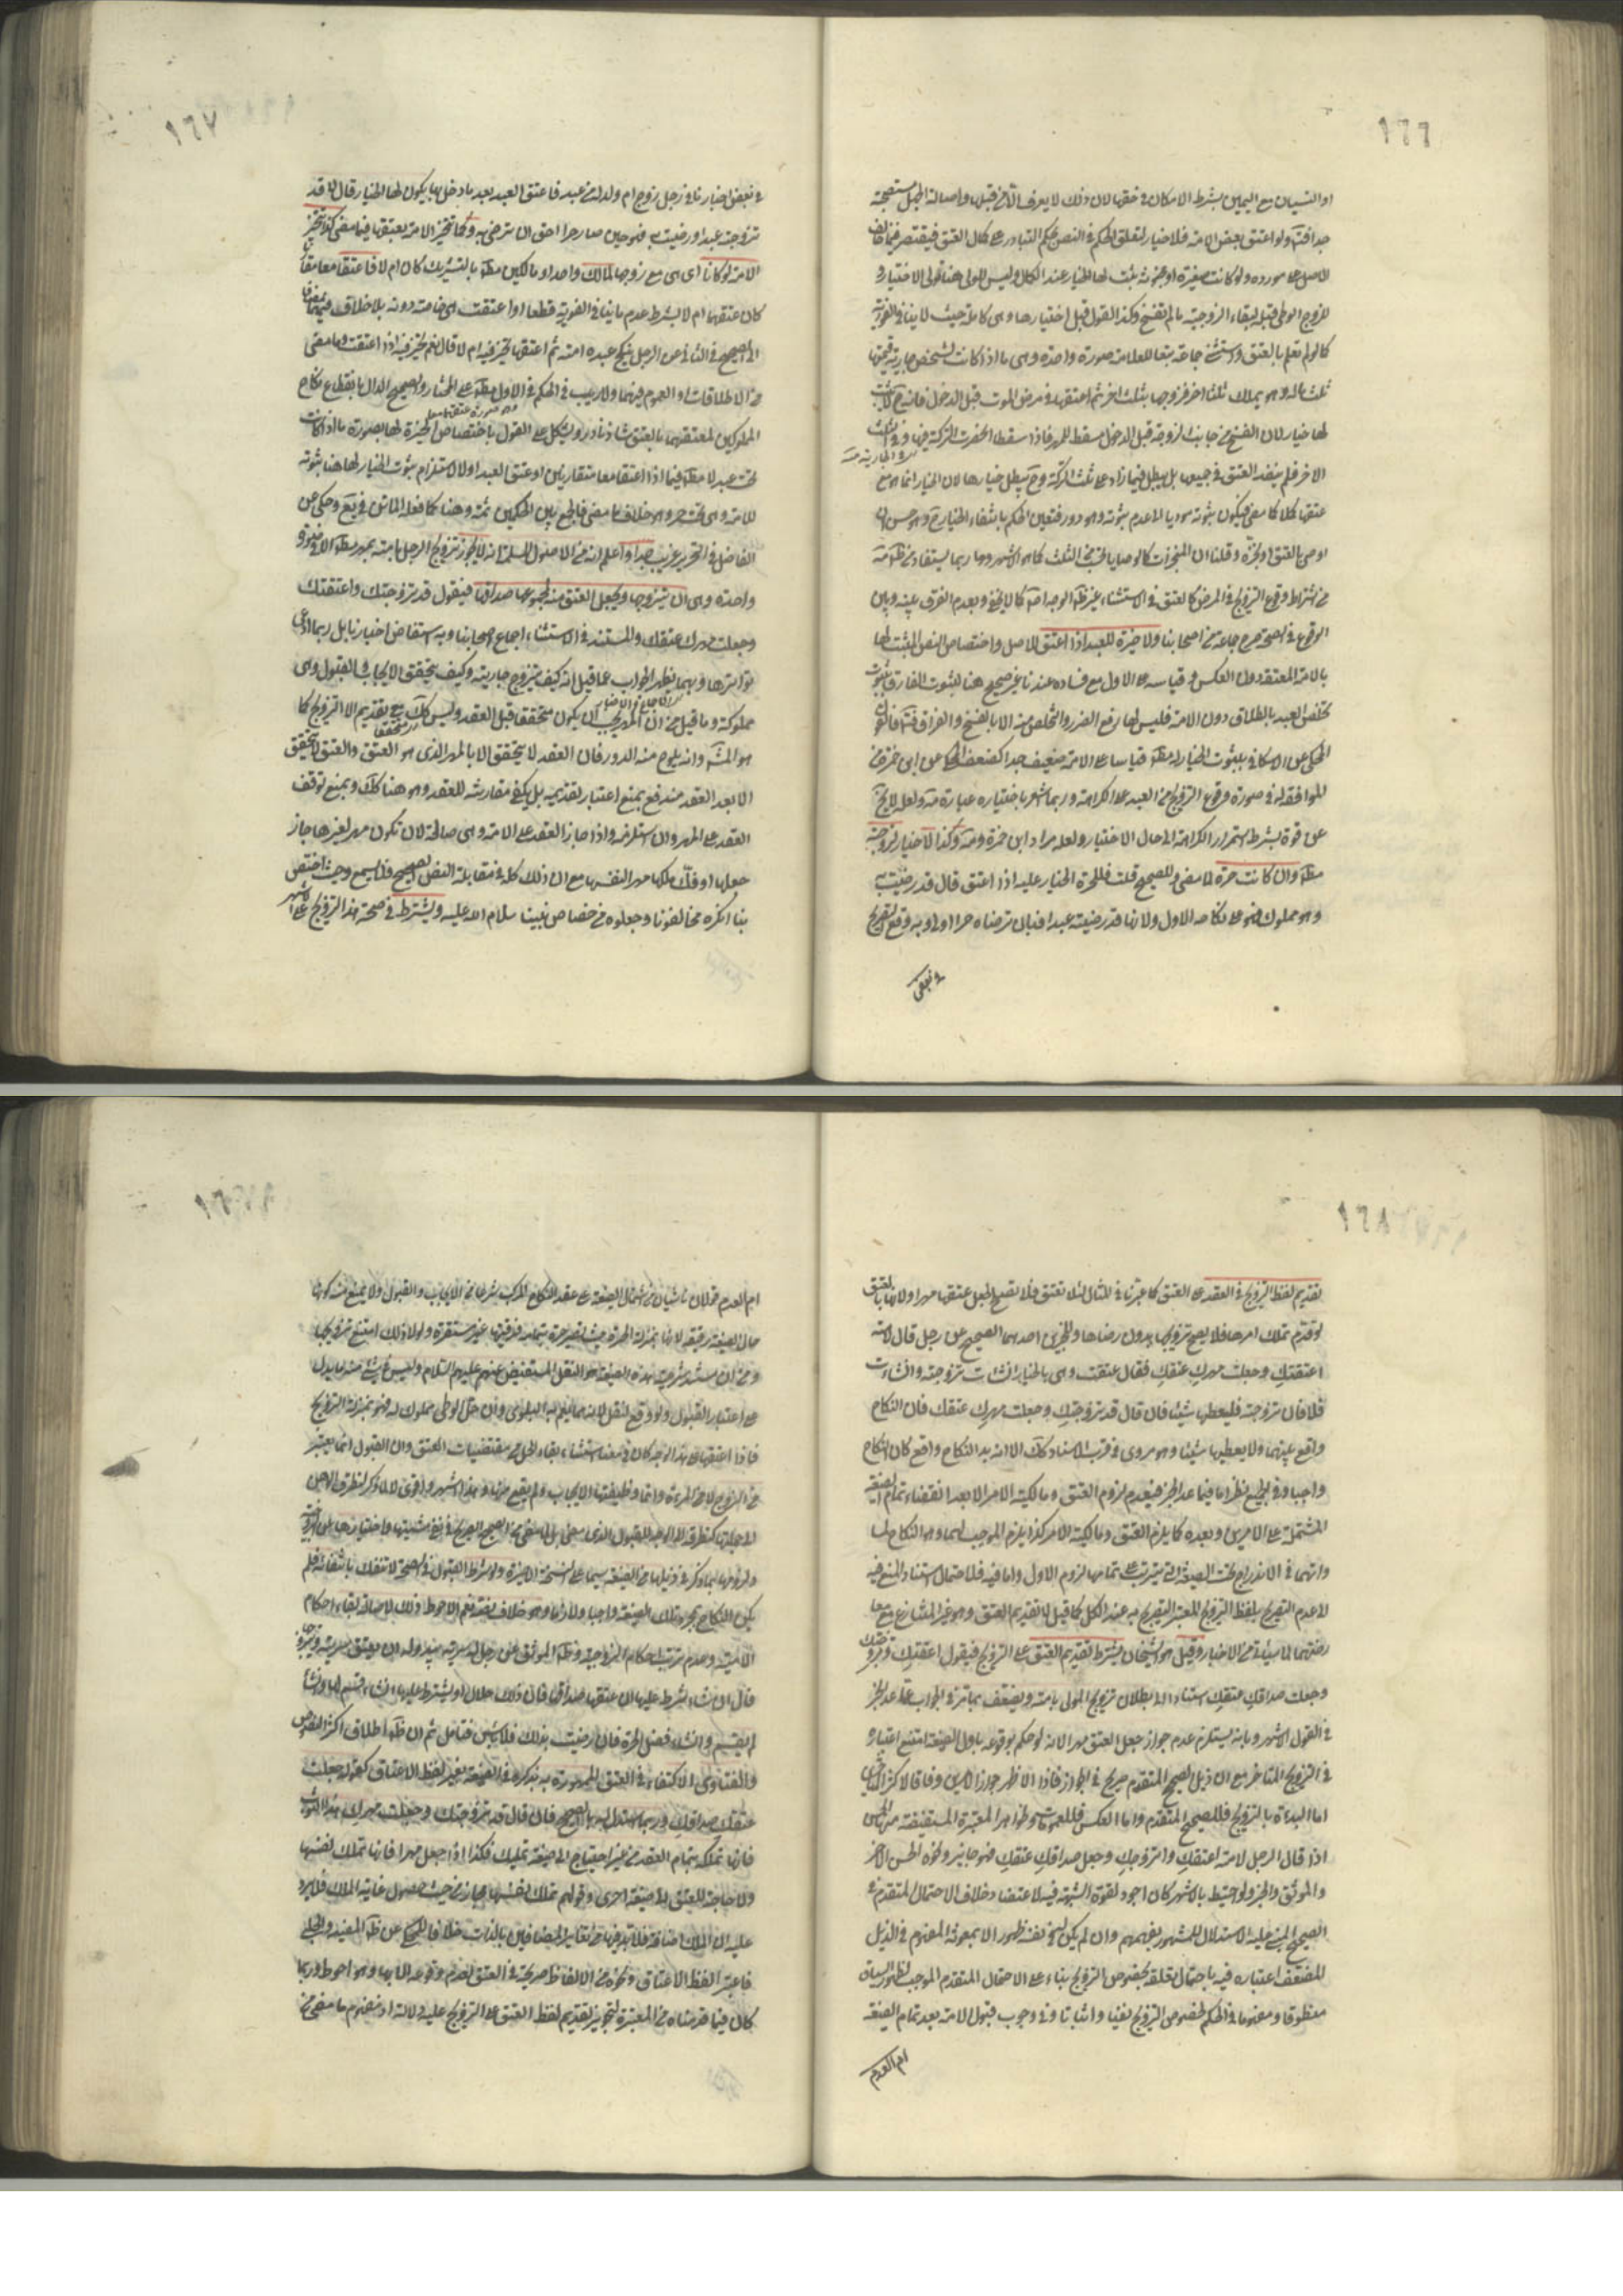 ١٦٦
او النسيان مع اليمين بشرط الامكان في حقها لان ذلك لا يعرف الا من قبلها واصالة الجهل مستصحبة
جدا فتأ ولو اعتق بعض الامة فلا خيار لتعلق الحكم في النص بحكم التبادر على كمال العتق فيقتصر فيما خالف
الاصل على مورده ولو كانت صغيرة او مجنونة ثبت لها الخيار عند الكمال وليس للولي هنا تولي الاختيار و
للزوج الوطي قبله لبقاء الزوجية ما لم تفسخ وكذا القول قبل اختيارها وهي كاملة حيث لا ينافي الفورية
كما لو لم تعلم بالعتق واستثنى جماعة تبعا للعلامة صورة واحدة وهي ما اذا كانت لشخص جارية قيمتها
ثلث ماله وهو يملك ثلثا اخر فزوجها بثلث اخر ثم اعتقها في مرض الموت قبل الدخول فانه ح لا يثبت
لها خيار لان الفسخ من جانب الزوجة قبل الدخول مسقط للمهر فاذا سقط انحصرت التركة فيها وفي الثلث
الاخر فلم ينفذ العتق في جميعها بل يبطل فيما زاد على ثلث التركة وح يبطل خيارها لان الخيار انما هو مع
عتقها كلا كما مضى فيكون ثبوته مؤديا الى عدم ثبوته وهو دور فتعين الحكم بانتفاء الخيار ح وهو حسن ان
اوصى بالعتق او نجزه وقلنا ان المنجزات كالوصايا تحسب من الثلث كما هو الاشهر وما ربما يستفاد من ظ مة
من اشتراط وقوع التزويج في المرض كالعتق في الاستثناء غير ظ الوجه اصلا كما لا يخفى وبعدم الفرق بينه وبين
الوقوع في الصحة صرح جماعة من اصحابنا ولا خيرة للعبد اذا اعتق للاصل واختصاص النص المثبت لها
بالامة المعتقة دون العكس وقياسه على الاول مع فساده عندنا غير صحيح هنا لثبوت الفارق بثبوت
تخلص العبد بالطلاق دون الامة فليس لها رفع الضرر والتخلص منه الا بالفسخ والفراق فتأ فالقول
المحكي عن الاسكافي بثبوت الخيار له مط قياسا على الامة ضعيف جدا كضعف المحكي عن ابن حمزة من
الموافقة له في صورة وقوع التزويج من العبد على الكراهة وربما اشعر باختياره عبارة مة ولعل لا يخ
عن قوة بشرط استمرار الكراهة الى حال الاختيار ولعله مراد ابن حمزة ومة وكذا لا خيار لزوجته
مط وان كانت حرة لما مضى وللصحيح قلت فللحرة الخيار عليه اذا اعتق قال قد رضيت به
وهو مملوك فهو على نكاحه الاول ولانها قد رضيته عبدا فبان ترضاه حرا اولى وبه وقع التصريح
في بعض
١٦٧
في بعض اخبارنا في رجل زوج ام ولد له من عبد فاعتق العبد بعد ما دخل بها يكون لها الخيار قال لا قد
تزوجته عبدا ورضيت به فهو حين صار حرا احق ان ترضى به وكما تخير الامة بعتقها فيما مضى كذا تخير
الامة لو كانا اي هي مع زوجها لمالك واحد او مالكين مط بالتشريك كان ام لا فاعتقا معا مط
كان عتقهما ام لا بشرط عدم ما ينافي الفورية قطعا او اعتقت هي خاصة دونه بلا خلاف فيهما
الى الصحيح في الثاني عن الرجل ينكح عبده امته ثم اعتقها تخير فيه ام لا قال نعم تخير فيه اذا اعتقت وما مضى
من الاطلاقات او العموم فيهما ولا ريب في الحكم في الاول مط على المختار والصحيح الدال بانقطاع نكاح
المملوكين لمعتقهما بالعتق شاذ نادر ويشكل على القول باختصاص الخيرة لها بصورة ما اذا كانت
تحت عبد لا مط فيما اذا اعتقا معا متقارنين او عتق العبد اولا لاستلزام ثبوت الخيار لها هنا ثبوته
للامة وهي تحت حر وهو خلاف ما مضى فالجمع بين الحكمين ثمة وهنا كما فعله الماتن في يع وحكي عن
الفاضل في التحرير غريب جدا واعلم انه من الاصول المسلمة انه لا يجوز تزويج الرجل بامته بمهر مط الا في صورة
واحدة وهي ان يتزوجها ويجعل العتق منه لمجموعها صداقها فيقول قد تزوجتك واعتقتك
وجعلت مهرك عتقك والمستند في الاستثناء اجماع اصحابنا وبه استفاض اخبارنا بل ربما ادعي
تواترها وبهما يظهر الجواب عما قيل انه كيف يتزوج جاريته وكيف يتحقق الايجاب والقبول وهي
مملوكة وما قيل من ان المهر يجب ان يكون متحققا قبل العقد وليس كك ومع تقديم التزويج كما
هو المش وانه يلوح منه الدور فان العقد لا يتحقق الا بالمهر الذي هو العتق والعتق لا يتحقق
الا بعد العقد مندفع بمنع اعتبار تقديمه بل يكفي مقارنته للعقد وهو هنا كك وبمنع توقف
العقد على المهر وان استلزمه واذا جاز العقد على الامة وهي صالحة لان تكون مهر لغيرها جاز
جعلها او فك ملكها مهر النفسها مع ان ذلك كله في مقابلة النص الصحيح فلا يسمع وحيث اختص
بنا انكره مخالفونا وجعلوه من خصائص نبينا سلام الله عليه ويشترط في صحة هذا التزويج على الاشهر
١٦٨
تقديم لفظ التزويج في العقد على العتق كما عبرنا في المثال لئلا تعتق فلا تصلح لجعل عتقها مهرا ولانها بالعتق
لو قدم تملك امرها فلا يصح تزويجها بدون رضاها وللخبرين احدهما الصحيح عن رجل قال لامته
اعتقتك وجعلت مهرك عتقك فقال عتقت وهي بالخيار ان شاءت تزوجته وان شاءت
فلا فان تزوجته فليعطها شيئا فان قال قد تزوجتك وجعلت مهرك عتقك فان النكاح
واقع بينهما ولا يعطيها شيئا وهو مروي في قرب الاسناد كك الا ان بدل النكاح واقع كان النكاح
واجبا وفي الجميع نظر اما فيما عدا الخبر فبعدم لزوم العتق ومالكية الامر الا بعد انقضاء تمام الصيغة
المشتملة على الامرين وبعده كما يلزم العتق ومالكية الامر كذا يلزم الموجب لهما وهو النكاح لما
واتهما في الاندراج تحت الصيغة التي يترتب على تمامها لزوم الاول واما فيه فلاحتمال استناد المنع فيه
الى عدم التصريح بلفظ التزويج المعتبر التصريح به عند الكل كما قيل لا تقديم العتق وهو غير المتنازع مع معا
رضتهما لما سيأتي من الاخبار وقيل هو الشيخان يشترط تقديم العتق على التزويج فيقول اعتقتك وتزوجتك
وجعلت صداقك عتقك استنادا الى بطلان تزويج المولى بامته ويضعف بما مر في الجواب عما عدا الخبر
في القول الاشهر وبانه يستلزم عدم جواز جعل العتق مهرا لانه لو حكم بوقوعه باول الصيغة امتنع اعتباره
في التزويج المتاخر مع ان ذيل الصحيح المتقدم صريح في الجواز فاذا الاظهر جواز الامرين وفاقا لاكثر المتاخرين
اما البدءة بالتزويج فللصحيح المتقدم واما العكس فللعمومات وظواهر المعتبرة المستفيضة منها الحسن
اذا قال الرجل لامته اعتقك واتزوجك وجعل صداقك عتقك فهو جايز ونحوه الحسن الاخر
والموثق والخبر ولو احتيط بالاشهر كان اجود لقوة الشبهة فيه لاعتضاد خلاف الاحتمال المتقدم في
الصحيح المبني عليه الاستدلال للمشهور بفهمهم وان لم يكن لي في نفسه ظهور الا بمعونة المفهوم في الذيل
المضعف اعتباره فيه باحتمال تعلقه بخصوص التزويج بناء على الاحتمال المتقدم الموجب لظهور السياق
منطوقا ومفهوما في الحكم لخصوص التزويج نفيا واثباتا وفي وجوب قبول الامة بعد تمام الصيغة
ام العدم
ام العدم قولان ناشيان من اشتمال الصيغة على عقد النكاح المركب شرعا من الايجاب والقبول ولا يمنع منه كونها
حال الصيغة رقيقة لانها بمنزلة الحرة حيث تصير حرة بتمامه فرقيتها غير مستقرة ولولا ذلك امتنع تزويجها
ومن ان مستند شرعية هذه الصيغة هو النقل المستفيض عنهم عليهم السلام وليس في شيء منه ما يدل
على اعتبار القبول ولو وقع لنقل لانه مما يعم به البلوى وان حل الوطي مملوك له فهو بمنزلة التزويج
فاذا اعتقها على هذا الوجه كان في معنى استثناء بقاء الحل من مقتضيات العتق وان القبول انما يعتبر
من الزوج لا من المراة وانما وظيفتها الايجاب ولم يقع منها وهذا اشهر واقوى
يكن النكاح بمجرد تلك الصيغة واجبا ولازما وهو خلاف نعم الاحوط ذلك لاصالة بقاء احكام
الامية وعدم ترتب احكام الزوجية وظ الموثق عن رجل له سرية يبدو له ان يعتق سريته ويتزوجها
قال ان شاء شرط عليها ان عتقها صداقها فان ذلك حلال او يشترط عليها ان شاء قسم لها وان شاء
لم يقسم وان شاء فضل الحرة فان رضيت بذلك فلا باس فتامل ثم ان ظ اطلاق اكثر النصوص
والفتاوى الاكتفاء في العتق الممهورة به بذكره في الصيغة بغير لفظ الاعتاق كقوله جعلت
عتقك صداقك وربما استدل له بالصحيح فان قال قد تزوجتك وجعلت مهرك
فانها تملكه بتمام العقد من غير احتياج الى صيغة تمليك فكذا اذا جعل مهرا فانها تملك نفسها
ولا حاجة للعتق الى صيغة اخرى وقولهم تملك نفسها مجاز من حيث حصول غاية الملك فلا يرد
عليه ان الملك اضافة فلا بد فيها من تغاير المضافين بالذات خلافا للمحكي عن ظ المفيد والحلبي
فاعتبرا لفظ الاعتاق ونحوه من الالفاظ صريحة في العتق لعدم وقوعه الا بها وهو احوط وربما
كان فيما قدمناه من المعتبرة لتجويز تقديم لفظ العتق على التزويج عليه دلالة او مفهوم ما مضى من